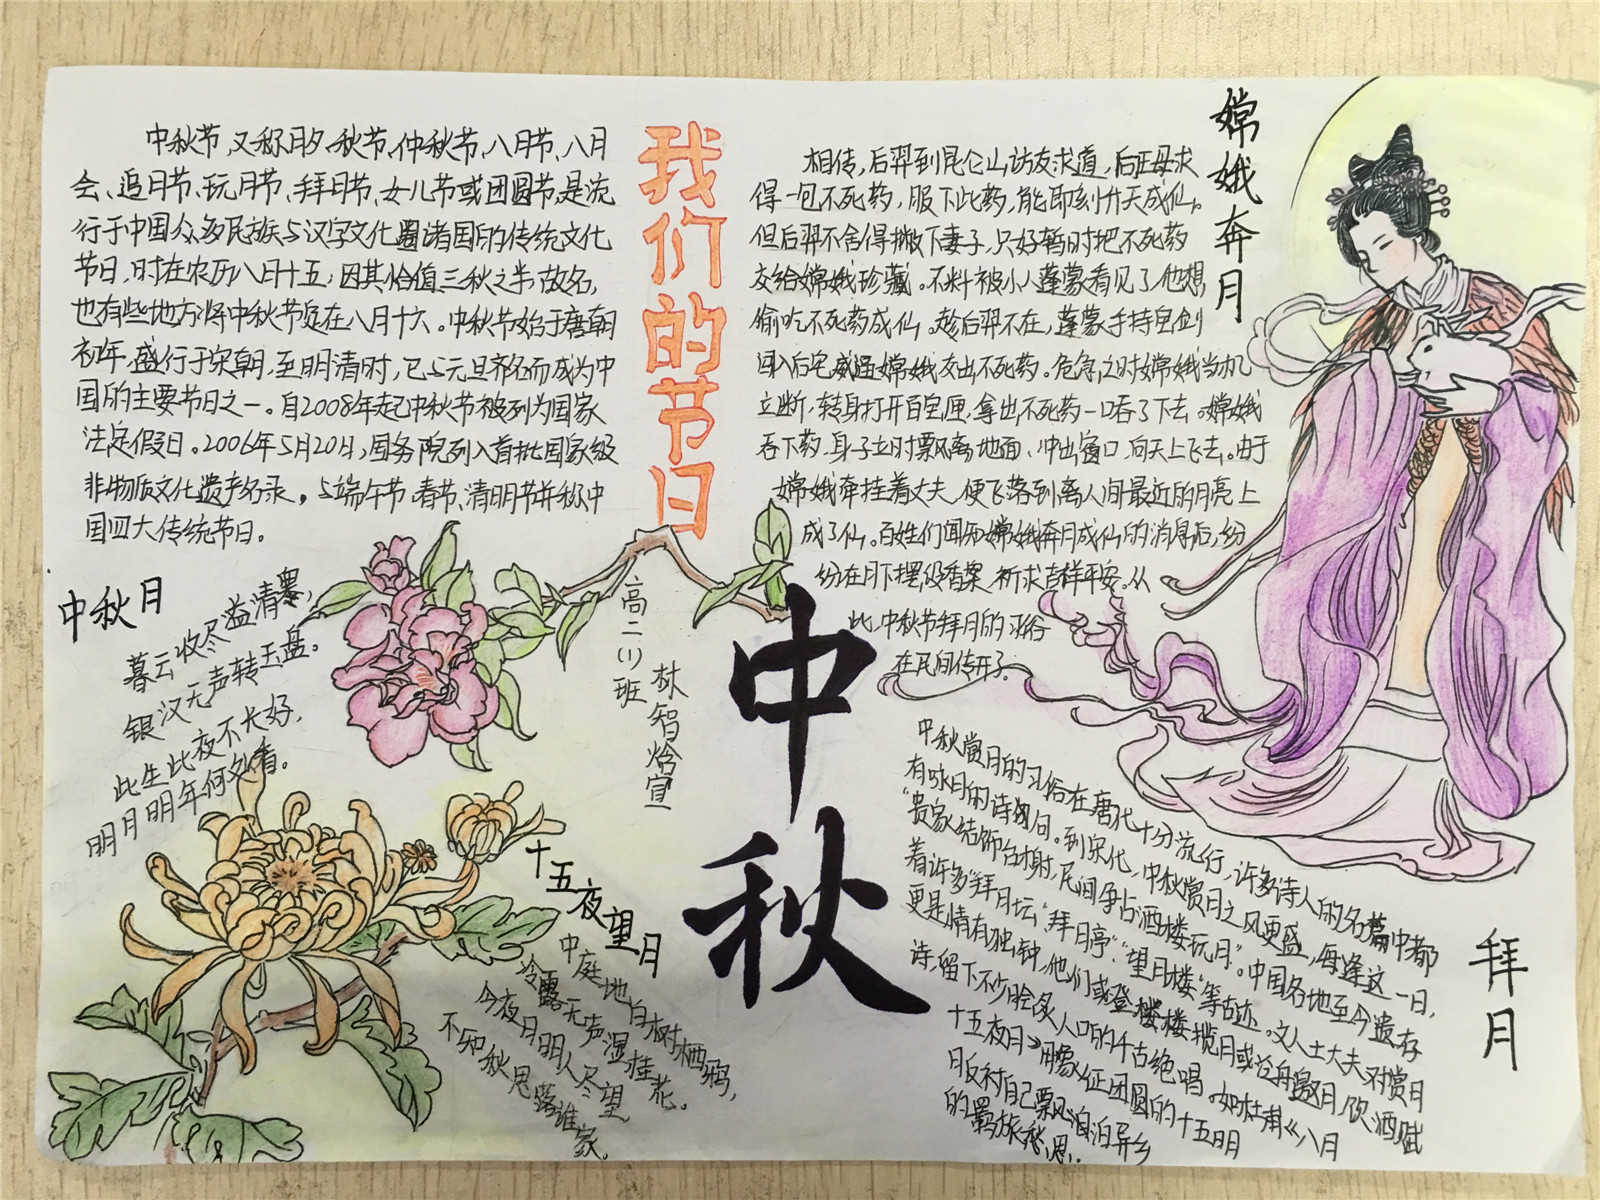 我们的节日
中秋节,又称月夕、秋节、仲秋节、八月节、八月
会、追月节、玩月节、拜月节、女儿节或团圆节,是流
行于中国众多民族与汉字文化圈诸国的传统文化
节日,时在农历八月十五;因其恰值三秋之半,故名,
也有些地方将中秋节定在八月十六。中秋节始于唐朝
初年,盛行于宋朝,至明清时,已与元旦齐名而成为中
国的主要节日之一。自2008年起中秋节被列为国家
法定假日。2006年5月20日,国务院列入首批国家级
非物质文化遗产名录。与端午节、春节、清明节并称中
国四大传统节日。
嫦娥奔月
相传,后羿到昆仑山访友求道,后王母求
得一包不死药,服下此药,能即刻升天成仙。
但后羿不舍得撇下妻子,只好暂时把不死药
交给嫦娥珍藏。不料被小人蓬蒙看见了他想
偷吃不死药成仙。趁后羿不在,蓬蒙手持宝剑
闯入后宅威逼嫦娥交出不死药。危急之时嫦娥当机
立断,转身打开百宝匣,拿出不死药一口吞了下去。嫦娥
吞下药,身子立时飘离地面、冲出窗口,向天上飞去。由于
嫦娥牵挂着丈夫,便飞落到离人间最近的月亮上
成了仙。百姓们闻知嫦娥奔月成仙的消息后,纷
纷在月下摆设香案,祈求吉祥平安。从
此,中秋节拜月的习俗
在民间传开了。
中秋月
暮云收尽溢清寒,
银汉无声转玉盘。
此生此夜不长好,
明月明年何处看。
高二(1)班
林智焓宣
中秋
十五夜望月
中庭地白树栖鸦,
冷露无声湿桂花。
今夜月明人尽望
不知秋思落谁家。
拜月
中秋赏月的习俗在唐代十分流行,许多诗人的名篇中都
有咏月的诗句。到宋代,中秋赏月之风更盛,每逢这一日,
“贵家结饰台榭,民间争占酒楼玩月”。中国各地至今遗存
着许多“拜月坛”“拜月亭”“望月楼”等古迹。文人士大夫对赏月
更是情有独钟,他们或登楼揽月或泛舟邀月,饮酒赋
诗,留下不少脍炙人口的千古绝唱。如杜甫《八月
十五夜月》用象征团圆的十五明
月反衬自己飘泊异乡
的羁旅愁思.